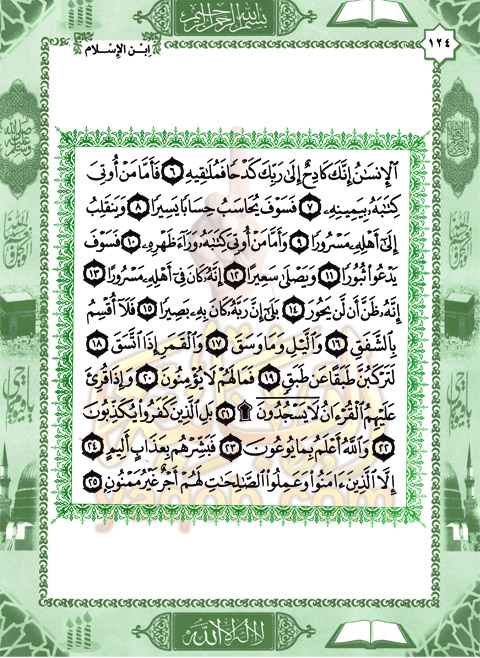 بسم الله الرحمن الرحيم
١٢٤
ابن الإسلام
الإِنسَٰنُ إِنَّكَ كَادِحٌ إِلَىٰ رَبِّكَ كَدْحًا فَمُلَٰقِيهِ ٦ فَأَمَّا مَنْ أُوتِىَ
كِتَٰبَهُۥ بِيَمِينِهِۦ ٧ فَسَوْفَ يُحَاسَبُ حِسَابًا يَسِيرًا ٨ وَيَنقَلِبُ
إِلَىٰ أَهْلِهِۦ مَسْرُورًا ٩ وَأَمَّا مَنْ أُوتِىَ كِتَٰبَهُۥ وَرَآءَ ظَهْرِهِۦ ١٠ فَسَوْفَ
يَدْعُوا۟ ثُبُورًا ١١ وَيَصْلَىٰ سَعِيرًا ١٢ إِنَّهُۥ كَانَ فِىٓ أَهْلِهِۦ مَسْرُورًا ١٣
إِنَّهُۥ ظَنَّ أَن لَّن يَحُورَ ١٤ بَلَىٰٓ إِنَّ رَبَّهُۥ كَانَ بِهِۦ بَصِيرًا ١٥ فَلَآ أُقْسِمُ
بِالشَّفَقِ ١٦ وَالَّيْلِ وَمَا وَسَقَ ١٧ وَالْقَمَرِ إِذَا اتَّسَقَ ١٨
لَتَرْكَبُنَّ طَبَقًا عَن طَبَقٍ ١٩ فَمَا لَهُمْ لَا يُؤْمِنُونَ ٢٠ وَإِذَا قُرِئَ
عَلَيْهِمُ الْقُرْءَانُ لَا يَسْجُدُونَ ۩ ٢١ بَلِ الَّذِينَ كَفَرُوا۟ يُكَذِّبُونَ
٢٢ وَاللَّهُ أَعْلَمُ بِمَا يُوعُونَ ٢٣ فَبَشِّرْهُم بِعَذَابٍ أَلِيمٍ ٢٤
إِلَّا الَّذِينَ ءَامَنُوا۟ وَعَمِلُوا۟ الصَّٰلِحَاتِ لَهُمْ أَجْرٌ غَيْرُ مَمْنُونٍ ٢٥
yaqob.com
لا اله الا الله